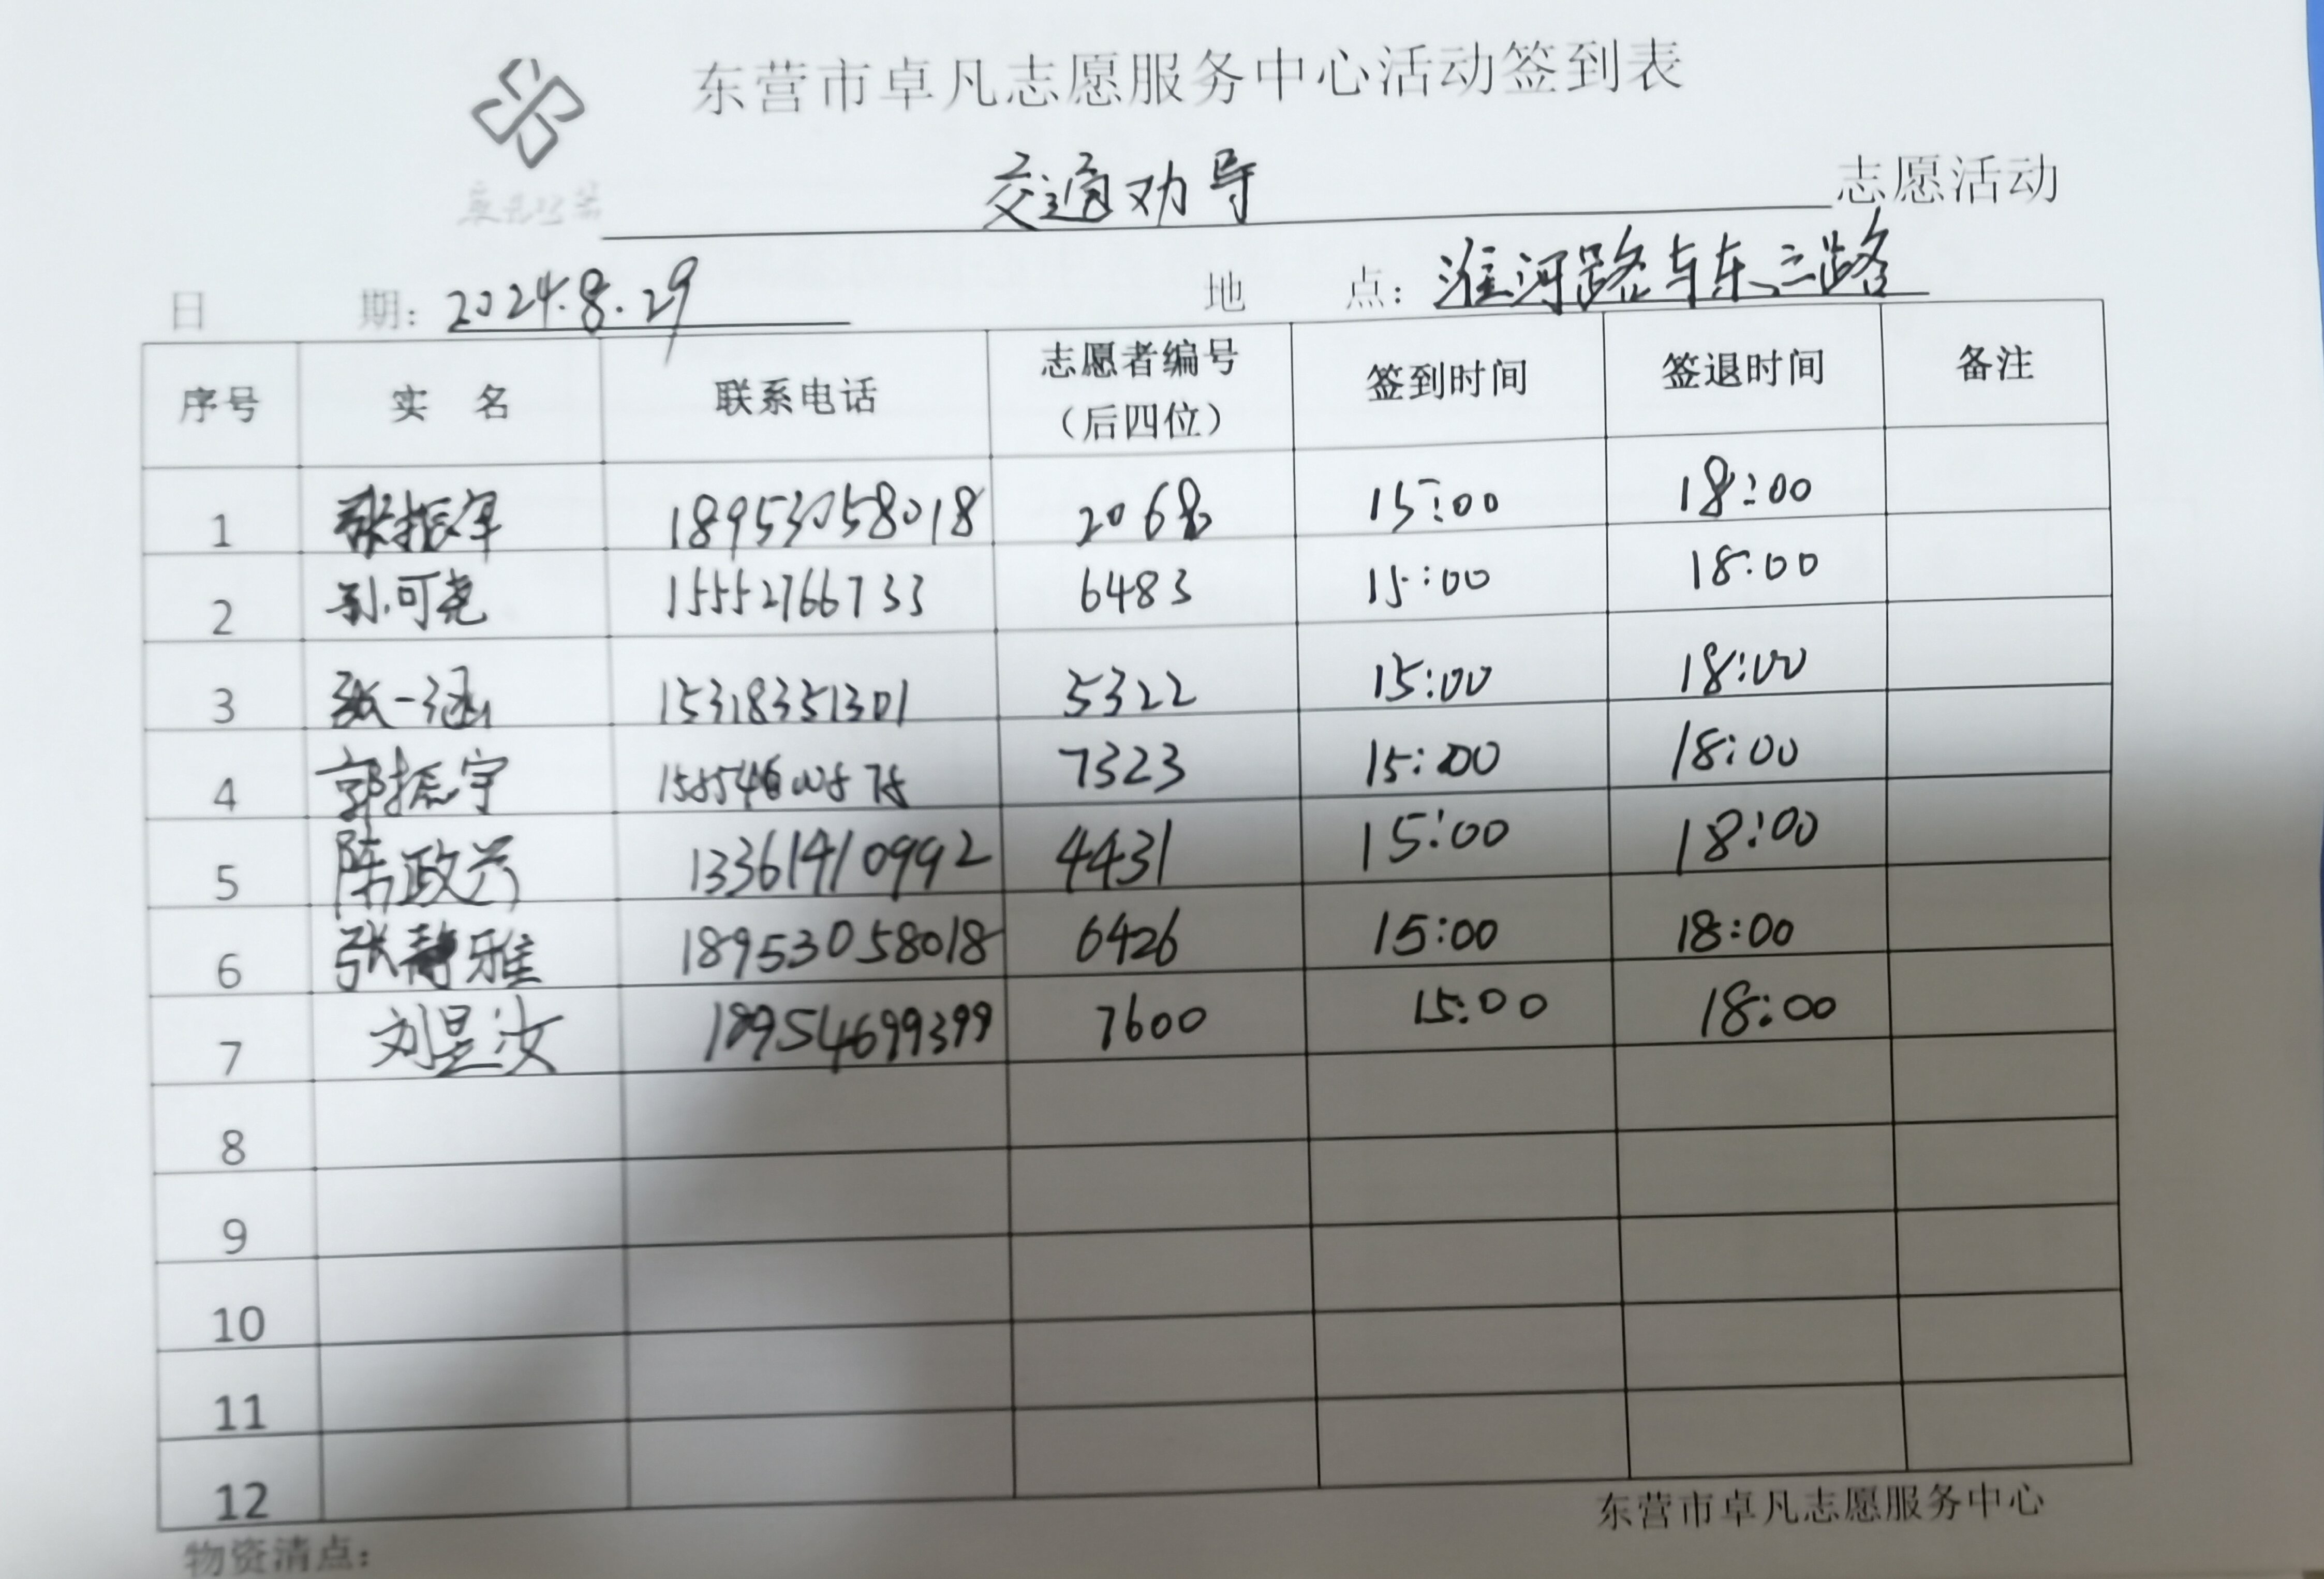 东营市卓凡志愿服务中心活动签到表
交通劝导 志愿活动
日 期: 2024.8.29 地 点: 淮河路与东三路
序号 实 名 联系电话 志愿者编号（后四位） 签到时间 签退时间 备注
1 张振军 18953058018 2068 15:00 18:00
2 孙可尧 15552766733 6483 15:00 18:00
3 张一涵 15318351301 5322 15:00 18:00
4 郭振宇 7323 15:00 18:00
5 陈政兴 13361410992 4431 15:00 18:00
6 张静雅 18953058018 6426 15:00 18:00
7 刘昱汝 18954699399 7600 15:00 18:00
8
9
10
11
12
东营市卓凡志愿服务中心
物资清点: